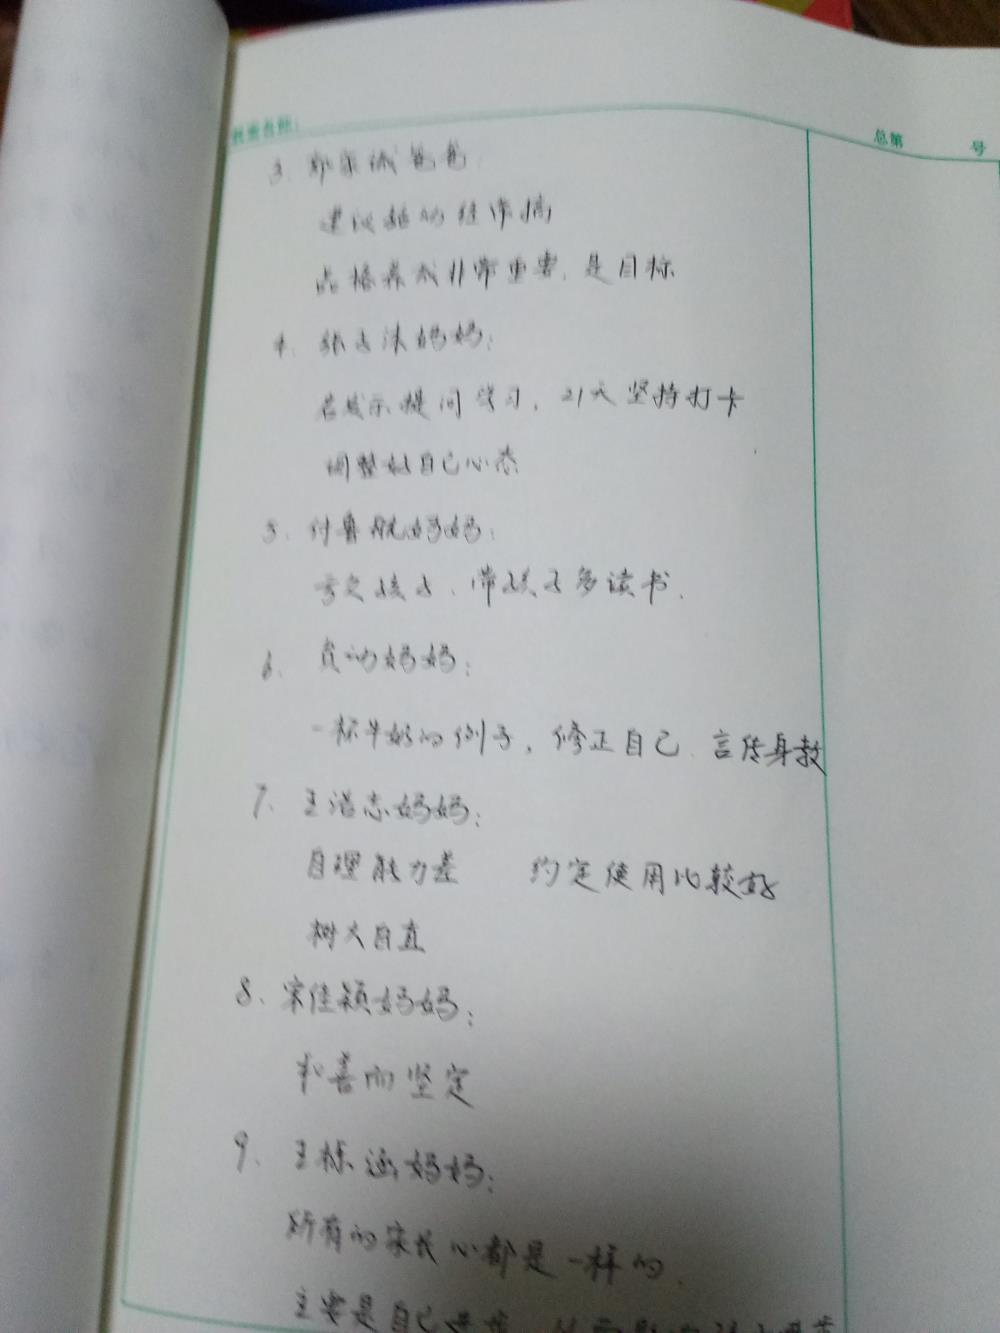 总第 号
3. 郭宗诚爸爸:
建议 的经常搞
品格养成非常重要,是目标
4. 张子沫妈妈:
启发示提问学习,21天坚持打卡
调整好自己心态
5. 付鲁航妈妈:
孩子、带孩子多读书.
6. 妈妈:
一杯牛奶的例子,修正自己.言传身教
7. 王浩志妈妈:
自理能力差 约定使用比较好
树大自直
8. 宋佳颖妈妈:
和善而坚定
9. 王栎涵妈妈:
所有的家长心都是一样的.
主要是自己进步,